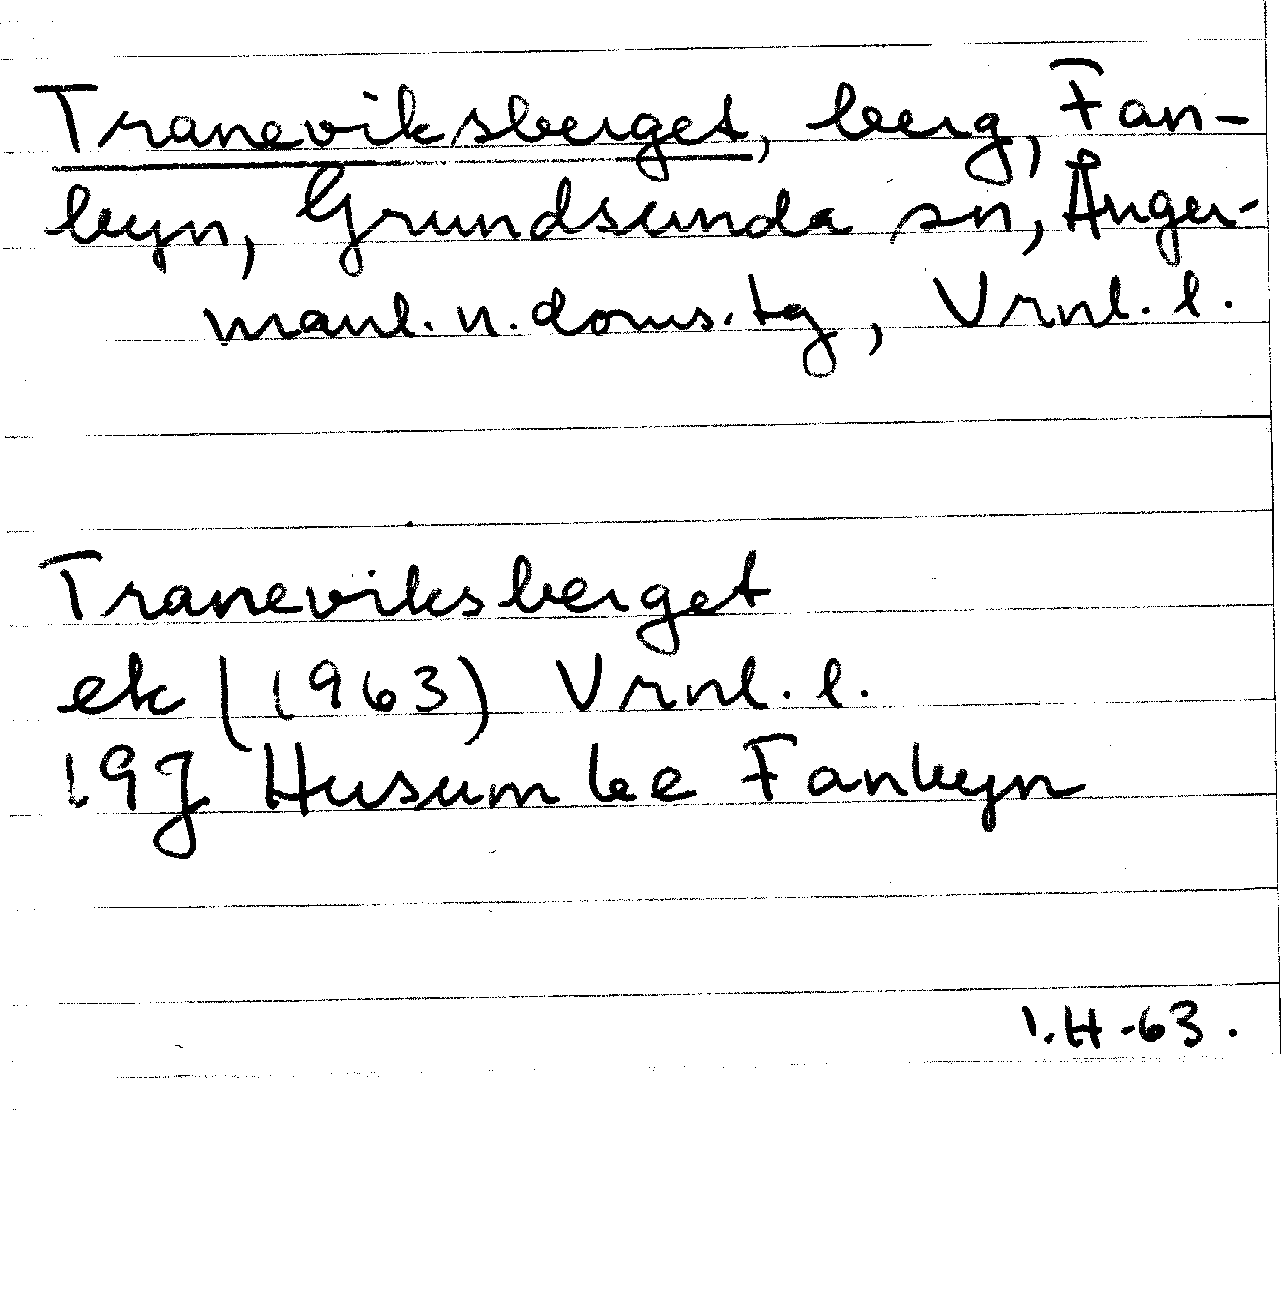 Traneviksberget, berg, Fan-
byn, Grundsunda sn, Ånger-
manl. n. doms. tg, Vrnl. l.
Traneviksberget
ek (1963) Vrnl. l.
19J Husum be Fanbyn
I.H -63.